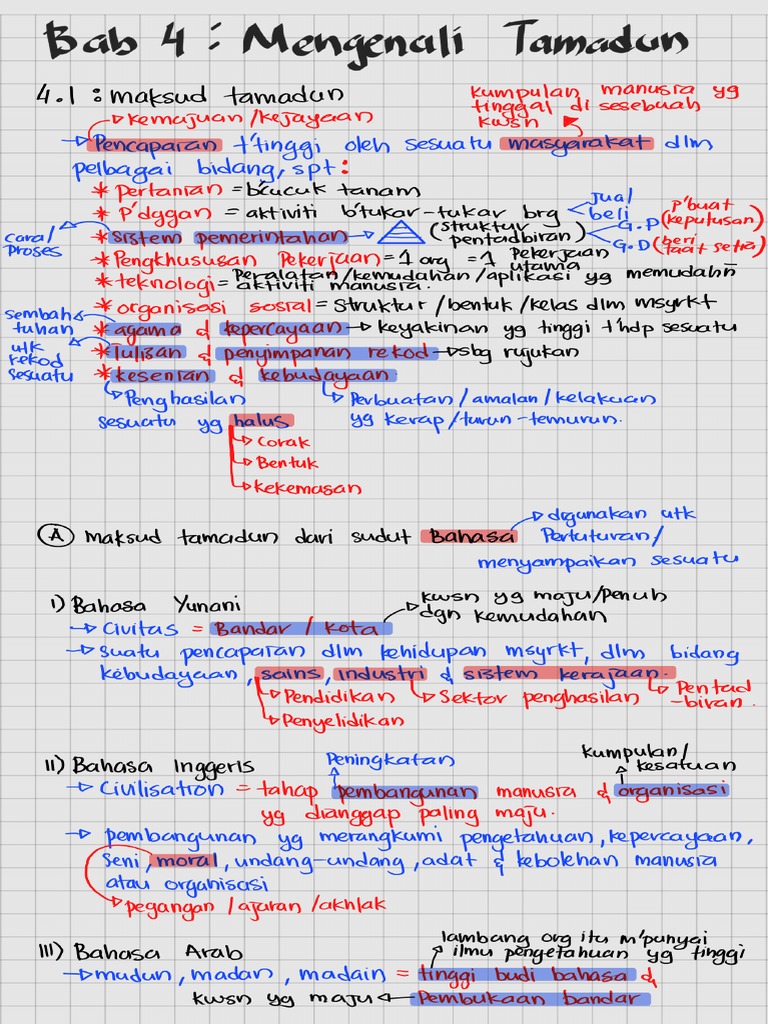 Bab 4 : Mengenali Tamadun
4.1 : maksud tamadun
kumpulan manusia yg
tinggal di sesebuah
kwsn
kemajuan/kejayaan
Pencapaian t'tinggi oleh sesuatu masyarakat dlm
pelbagai bidang, spt :
* pertanian = b'cucuk tanam
* P'dggan = aktiviti b'tukar-tukar brg
Jual
beli
cara/
Proses
* sistem pemerintahan
(struktur
pentadbiran)
G.P (P'buat
keputusan)
G.D (beri
taat setia)
* Pengkhususan Pekerjaan = 1 org = 1 Pekerjaan
utama
* teknologi = Peralatan/kemudahan/aplikasi yg memudahn
aktiviti manusia.
* organisasi sosial = struktur/bentuk/kelas dlm msyrkt
sembah
tuhan
* agama & kepercayaan keyakinan yg tinggi t'hdp sesuatu
utk
rekod
sesuatu
* Tulisan & penyimpanan rekod sbg rujukan
* kesenian & kebudayaan
Penghasilan
sesuatu yg halus
Perbuatan/amalan/kelakuan
yg kerap/turun-temurun.
Corak
Bentuk
kekemasan
A maksud tamadun dari sudut Bahasa
digunakan utk
Pertuturan/
menyampaikan sesuatu
I) Bahasa Yunani
kwsn yg maju/penuh
dgn kemudahan
Civitas = Bandar / kota
suatu pencapaian dlm kehidupan msyrkt, dlm bidang
kebudayaan, sains, industri & sistem kerajaan.
Pendidikan
Penyelidikan
Sektor penghasilan
Pentad
-biran.
II) Bahasa Inggeris
Peningkatan
kumpulan/
kesatuan
Civilisation = tahap pembangunan manusia & organisasi
yg dianggap paling maju.
pembangunan yg merangkumi pengetahuan, kepercayaan,
seni, moral, undang-undang, adat & kebolehan manusia
atau organisasi
pegangan /ajaran /akhlak
III) Bahasa Arab
lambang org itu m'punyai
ilmu pengetahuan yg tinggi
mudun, madan, madain = tinggi budi bahasa &
kwsn yg maju Pembukaan bandar